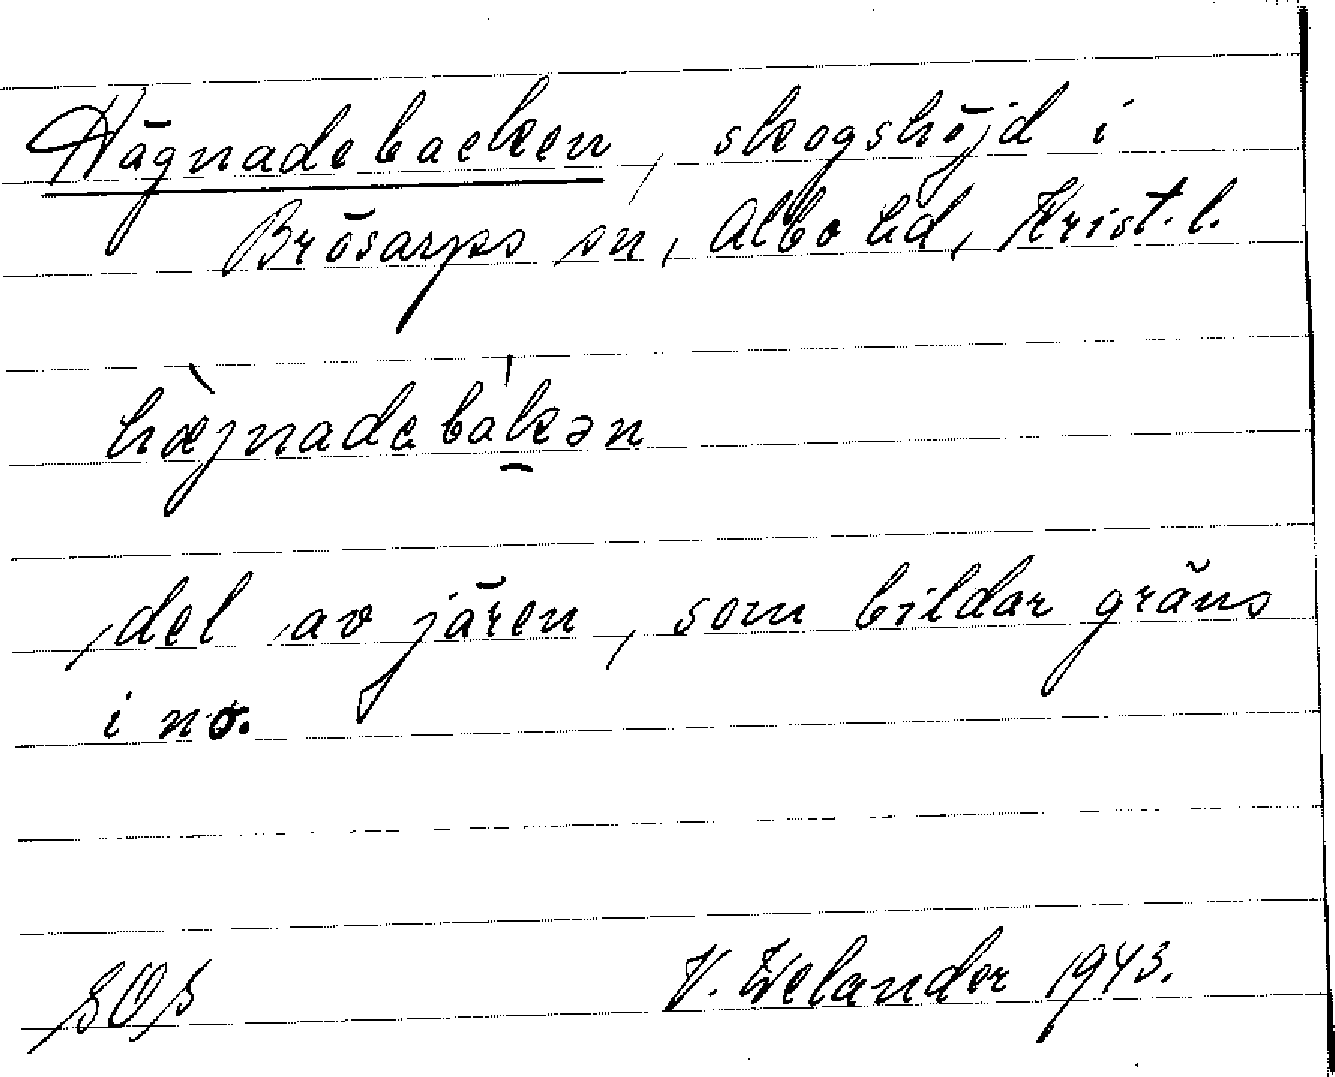 Hägnadebacken, skogshöjd i
Brösarps sn, Albo hd, Krist. l.
hæ̀jnadebák̯ən
del av jären, som bildar gräns
i nö.
SOS V. Welander 1943.